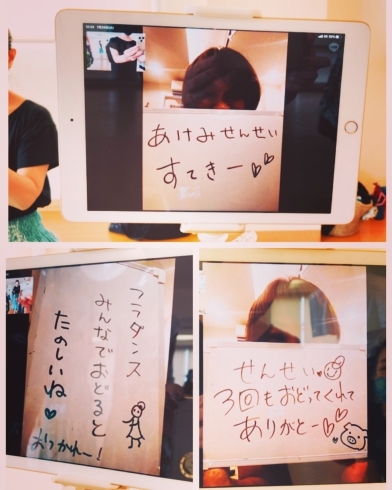 あけみせんせい
すてきー♡♡
フラダンス
みんなでおどると
たのしいね♥
おつかれー!
せんせい♥
3回もおどってくれて
ありがとー♡♡